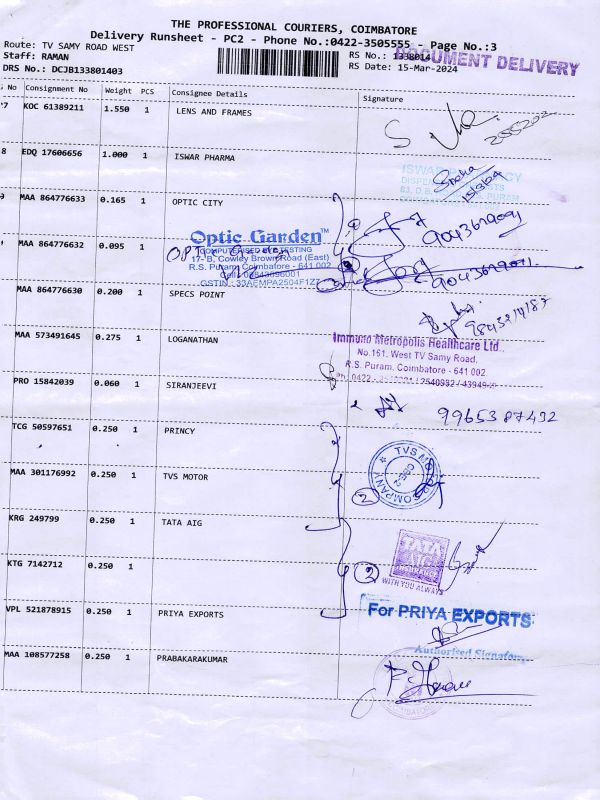 THE PROFESSIONAL COURIERS, COIMBATORE
Delivery Runsheet - PC2 - Phone No.:0422-3505555 - Page No.:3
Route: TV SAMY ROAD WEST
RS No.: 1338014
DOCUMENT DELIVERY
Staff: RAMAN
RS Date: 15-Mar-2024
DRS No.: DCJB133801403
No Consignment No Weight PCS Consignee Details Signature
7 KOC 61389211 1.550 1 LENS AND FRAMES
8 EDQ 17606656 1.000 1 ISWAR PHARMA
15/3/24
MAA 864776633 0.165 1 OPTIC CITY
9043679091
MAA 864776632 0.095 1
Optic Garden™
COMPUTERISED EYE TESTING
17- B, Cowley Brown Road (East)
R.S. Puram, Coimbatore - 641 002
GSTIN : 33AEMPA2504F1Z7
2
MAA 864776630 0.200 1 SPECS POINT
MAA 573491645 0.275 1 LOGANATHAN
Immuno Metropolis Healthcare Ltd.,
No.161, West TV Samy Road,
R.S. Puram, Coimbatore - 641 002.
PRO 15842039 0.060 1 SIRANJEEVI
9965387432
TCG 50597651 0.250 1 PRINCY
MAA 301176992 0.250 1 TVS MOTOR
TVS MOTOR COMPANY
CBE-2
2
KRG 249799 0.250 1 TATA AIG
TATA
AIG
INSURANCE
WITH YOU ALWAYS
KTG 7142712 0.250 1
2
VPL 521878915 0.250 1 PRIYA EXPORTS
For PRIYA EXPORTS
Authorised Signatory
MAA 108577258 0.250 1 PRABAKARAKUMAR